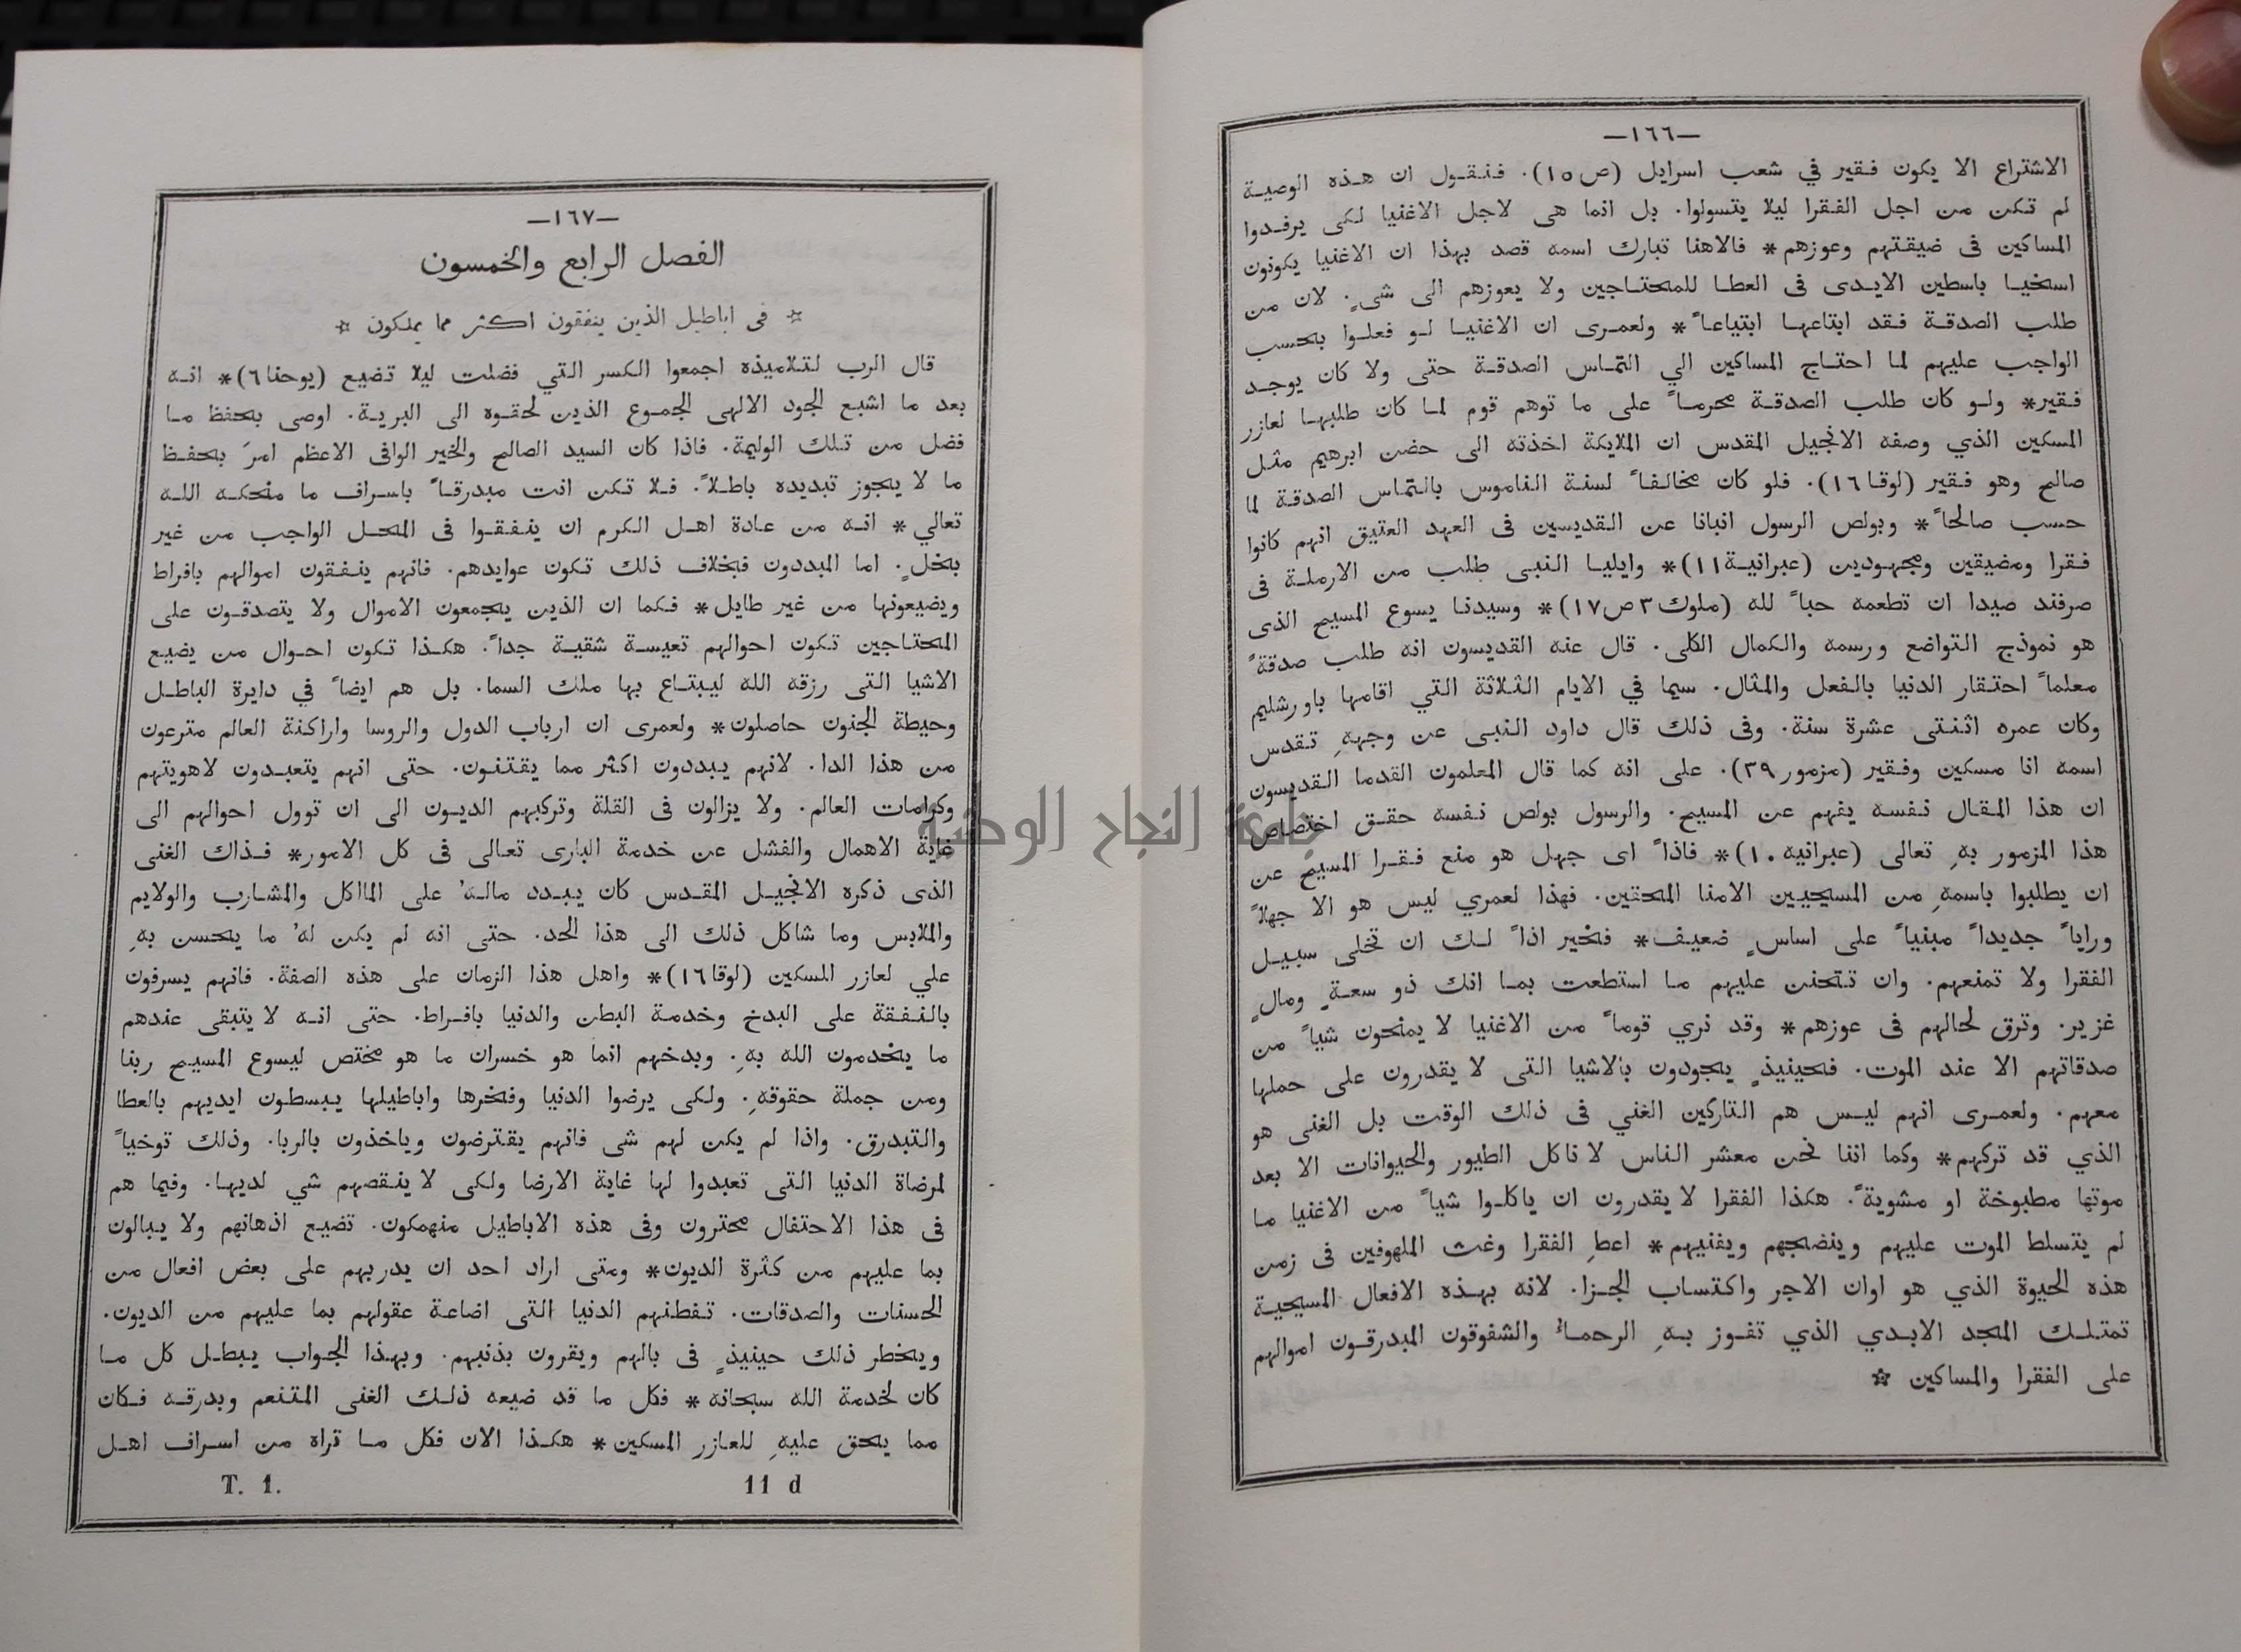 —١٦٦—
الاشتراع الا يكون فقير في شعب اسرايل (ص١٥). فنقول ان هذه الوصية
لم تكن من اجل الفقرا ليلا يتسولوا. بل انما هى لاجل الاغنيا لكى يرفدوا
المساكين فى ضيقتهم وعوزهم* فالاهنا تبارك اسمه قصد بهذا ان الاغنيا يكونون
اسخيا باسطين الايدى فى العطا للمحتاجين ولا يعوزهم الى شىٍ. لان من
طلب الصدقة فقد ابتاعها ابتياعاً* ولعمرى ان الاغنيا لو فعلوا بحسب
الواجب عليهم لما احتاج المساكين الي التماس الصدقة حتى ولا كان يوجد
فقير* ولو كان طلب الصدقة محرماً على ما توهم قوم لما كان طلبها لعازر
المسكين الذي وصفه الانجيل المقدس ان الملايكة اخذته الى حضن ابرهيم مثل
صالح وهو فقير (لوقا١٦). فلو كان مخالفاً لسنة الناموس بالتماس الصدقة لما
حسب صالحاً* وبولص الرسول انبانا عن القديسين فى العهد العتيق انهم كانوا
فقرا ومضيقين ومجهودين (عبرانية١١)* وايليا النبى طلب من الارملة فى
صرفند صيدا ان تطعمه حباً لله (ملوك٣ص١٧)* وسيدنا يسوع المسيح الذى
هو نموذج التواضع ورسمه والكمال الكلى. قال عنه القديسون انه طلب صدقةً
معلماً احتقار الدنيا بالفعل والمثال. سيما في الايام الثلاثة التي اقامها باورشليم
وكان عمره اثنتى عشرة سنة. وفى ذلك قال داود النبى عن وجههِ تقدس
اسمه انا مسكين وفقير (مزمور٣٩). على انه كما قال المعلمون القدما القديسون
ان هذا المقال نفسه يفهم عن المسيح. والرسول بولص نفسه حقق اختصاص
هذا المزمور بهِ تعالى (عبرانيه١٠)* فاذاً اى جهل هو منع فقرا المسيح عن
ان يطلبوا باسمهِ من المسيحيين الامنا المحقين. فهذا لعمري ليس هو الا جهلاً
ورایاً جديداً مبنياً على اساسٍ ضعيف* فخير اذاً لك ان تخلى سبيل
الفقرا ولا تمنعهم. وان تتحنن عليهم ما استطعت بما انك ذو سعةٍ ومالٍ
غزير. وترق لحالهم فى عوزهم* وقد نري قوماً من الاغنيا لا يمنحون شياً من
صدقاتهم الا عند الموت. فحينيذٍ يجودون بالاشيا التى لا يقدرون على حملها
معهم. ولعمرى انهم ليس هم التاركين الغني فى ذلك الوقت بل الغنى هو
الذي قد تركهم* وكما اننا نحن معشر الناس لا ناكل الطيور والحيوانات الا بعد
موتها مطبوخة او مشويةً. هكذا الفقرا لا يقدرون ان ياكلوا شياً من الاغنيا ما
لم يتسلط الموت عليهم وينضجهم ويفنيهم* اعطِ الفقرا وغث الملهوفين فى زمن
هذه الحيوة الذي هو اوان الاجر واكتساب الجزا. لانه بهذه الافعال المسيحية
تمتلك المجد الابدي الذي تفوز بهِ الرحماءُ والشفوقون المبدرقون اموالهم
على الفقرا والمساكين ☆
—١٦٧—
الفصل الرابع والخمسون
☆ فى اباطيل الذين ينفقون اكثر مما يملكون ☆
قال الرب لتلاميذه اجمعوا الكسر التي فضلت ليلا تضيع (يوحنا٦)* انه
بعد ما اشبع الجود الالهى الجموع الذين لحقوه الى البرية. اوصى بحفظ ما
فضل من تلك الوليمة. فاذا كان السيد الصالح والخير الوافى الاعظم امرَ بحفظ
ما لا يجوز تبديده باطلاً. فلا تكن انت مبدرقاً باسراف ما منحكه الله
تعالي* انه من عادة اهل الكرم ان ينفقوا فى المحل الواجب من غير
بخلٍ. اما المبددون فبخلاف ذلك تكون عوايدهم. فانهم ينفقون اموالهم بافراط
ويضيعونها من غير طايل* فكما ان الذين يجمعون الاموال ولا يتصدقون على
المحتاجين تكون احوالهم تعيسة شقية جداً. هكذا تكون احوال من يضيع
الاشيا التى رزقه الله ليبتاع بها ملك السما. بل هم ايضاً في دايرة الباطل
وحيطة الجنون حاصلون* ولعمرى ان ارباب الدول والروسا واراكنة العالم مترعون
من هذا الدا. لانهم يبددون اكثر مما يقتنون. حتى انهم يتعبدون لاهويتهم
وكرامات العالم. ولا يزالون فى القلة وتركبهم الديون الى ان توول احوالهم الى
غاية الاهمال والفشل عن خدمة البارى تعالى فى كل الامور* فذاك الغنى
الذى ذكره الانجيل المقدس كان يبدد مالهُ على المااكل والمشارب والولايم
والملابس وما شاكل ذلك الى هذا الحد. حتى انه لم يكن لهُ ما يحسن بهِ
علي لعازر المسكين (لوقا١٦)* واهل هذا الزمان على هذه الصفة. فانهم يسرفون
بالنفقة على البدخ وخدمة البطن والدنيا بافراط. حتى انه لا يتبقى عندهم
ما يخدمون الله بهِ. وبدخهم انما هو خسران ما هو مختص ليسوع المسيح ربنا
ومن جملة حقوقهِ. ولكى يرضوا الدنيا وفخرها واباطيلها يبسطون ايديهم بالعطا
والتبدرق. واذا لم يكن لهم شى فانهم يقترضون وياخذون بالربا. وذلك توخياً
لمرضاة الدنيا التى تعبدوا لها غاية الارضا ولكى لا ينقصهم شي لديها. وفيما هم
فى هذا الاحتفال محترون وفى هذه الاباطيل منهمكون. تضيع اذهانهم ولا يبالون
بما عليهم من كثرة الديون* ومتى اراد احد ان يدربهم على بعض افعال من
الحسنات والصدقات. تفطنهم الدنيا التى اضاعة عقولهم بما عليهم من الديون.
ويخطر ذلك حينيذٍ فى بالهم ويقرون بذنبهم. وبهذا الجواب يبطل كل ما
كان لخدمة الله سبحانه* فكل ما قد ضيعه ذلك الغنى المتنعم وبدرقه فكان
مما يحق عليهِ للعازر المسكين* هكذا الان فكل ما تراه من اسراف اهل
T. 1. 11 d
جامعة النجاح الوطنية